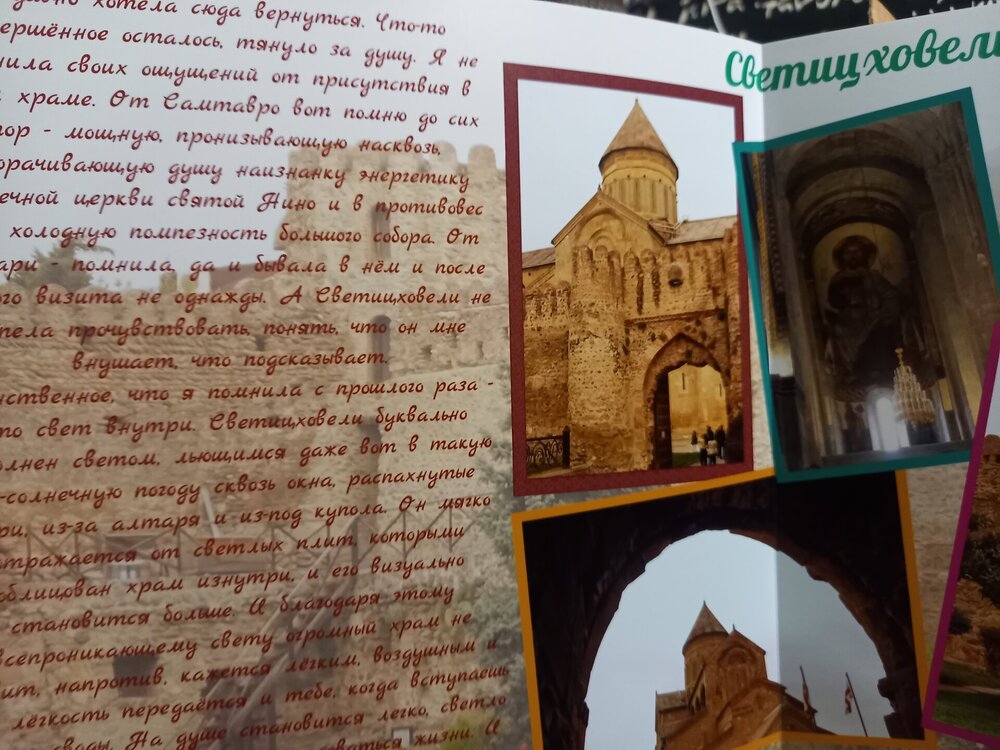 хотела сюда вернуться. Что-то
осталось, тянуло за душу. Я не
своих ощущений от присутствия в
храме. От Самтавро вот помню до сих
пор - мощную, пронизывающую насквозь,
душу наизнанку энергетику
церкви святой Нино и в противовес
холодную помпезность большого собора. От
помнила, да и бывала в нём и после
визита не однажды. А Светицховели не
прочувствовать, понять, что он мне
внушает, что подсказывает.
что я помнила с прошлого раза -
свет внутри. Светицховели буквально
светом, льющимся даже вот в такую
-солнечную погоду сквозь окна, распахнутые
из-за алтаря и из-под купола. Он мягко
отражается от светлых плит, которыми
облицован храм изнутри, и его визуально
становится больше. И благодаря этому
всепроникающему свету огромный храм не
напротив, кажется лёгким, воздушным и
лёгкость передаётся и тебе, когда вступаешь
На душе становится легко, светло
жизни. И
Светицховели